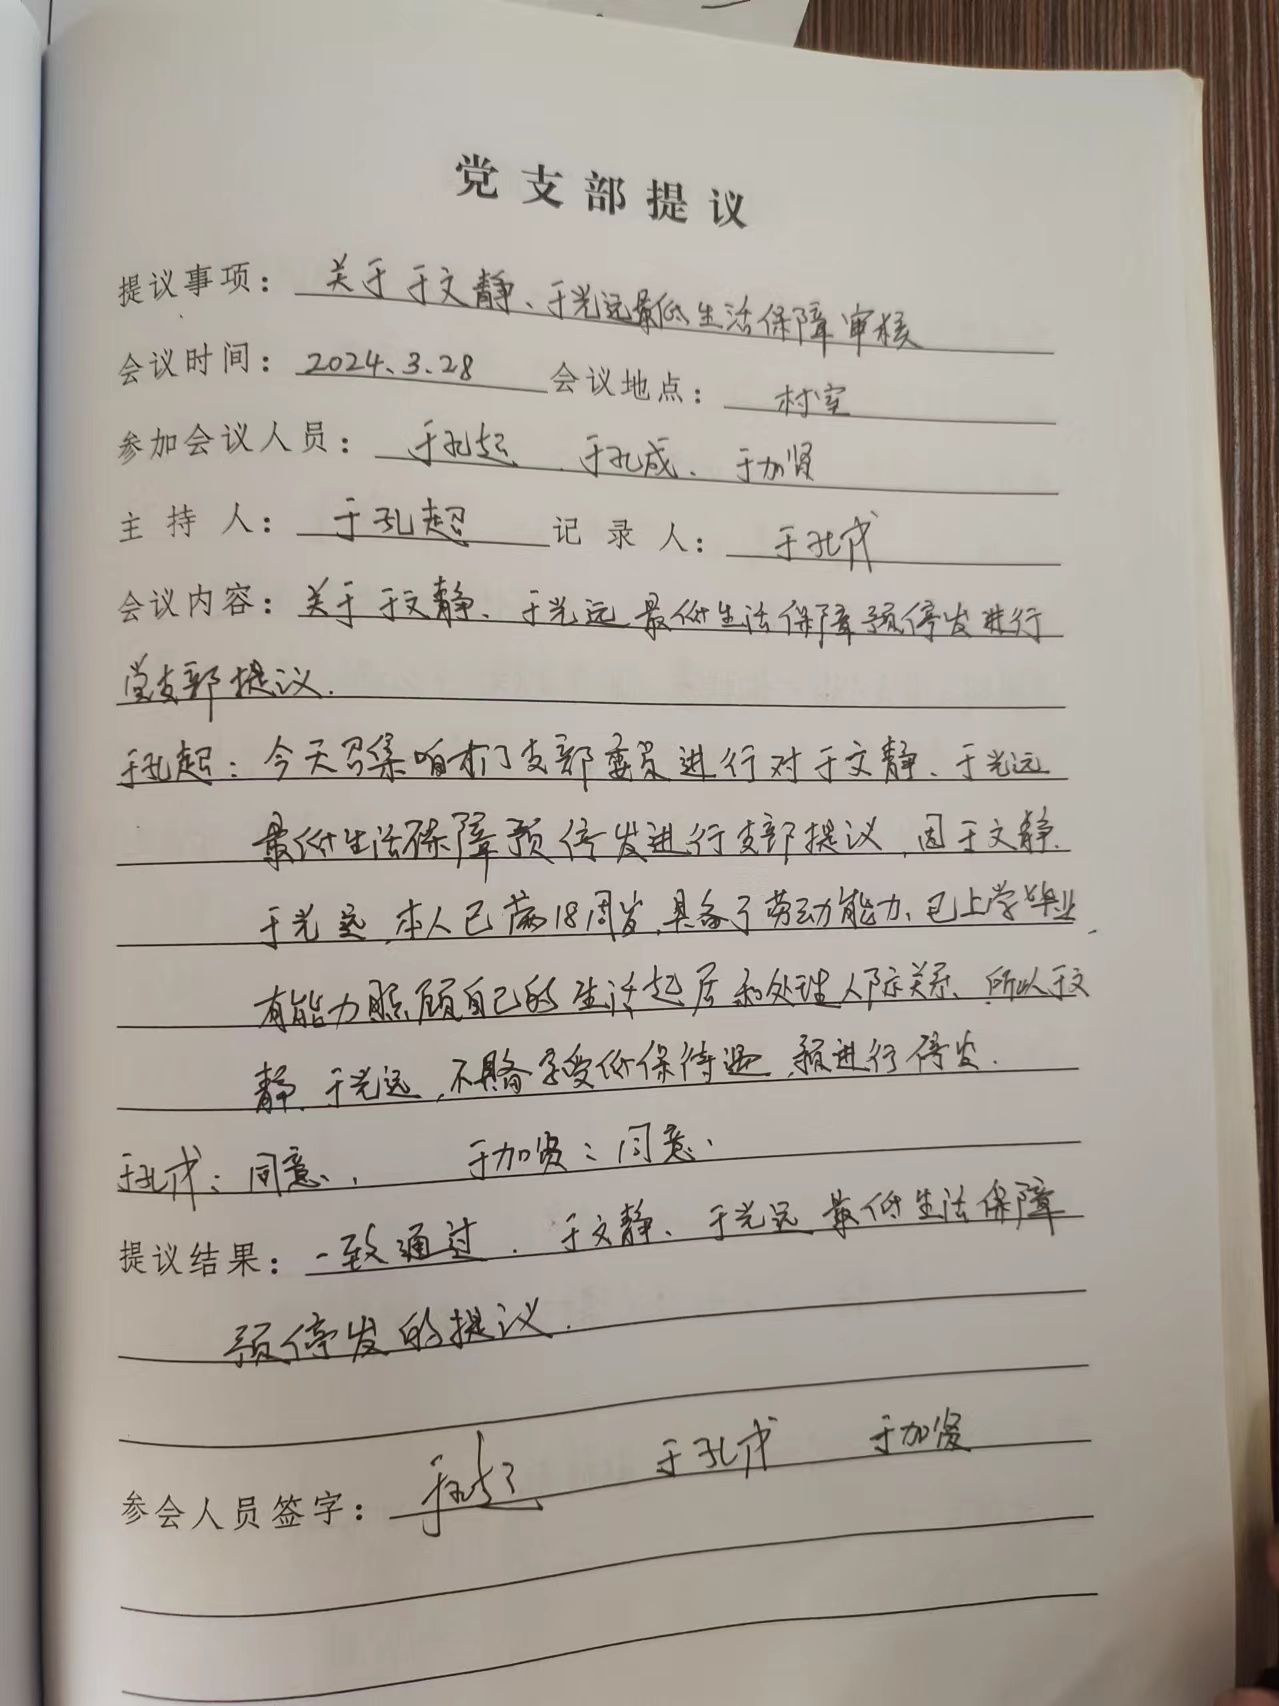 党支部提议
提议事项：关于于文静、于光远最低生活保障审核
会议时间：2024.3.28 会议地点：村室
参加会议人员：于孔超、于孔成、于加贤
主持人：于孔超 记录人：于孔成
会议内容：关于于文静、于光远最低生活保障预停发进行
党支部提议.
于孔超：今天召集咱们支部委员进行对于文静、于光远
最低生活保障预停发进行支部提议，因于文静、
于光远，本人已满18周岁，具备了劳动能力、已上学毕业，
有能力照顾自己的生活起居和处理人际关系、所以于文
静、于光远，不具备享受低保待遇，预进行停发.
于孔成：同意、. 于加贤：同意、
提议结果：一致通过．于文静、于光远最低生活保障
预停发的提议.
参会人员签字：于孔超 于孔成 于加贤